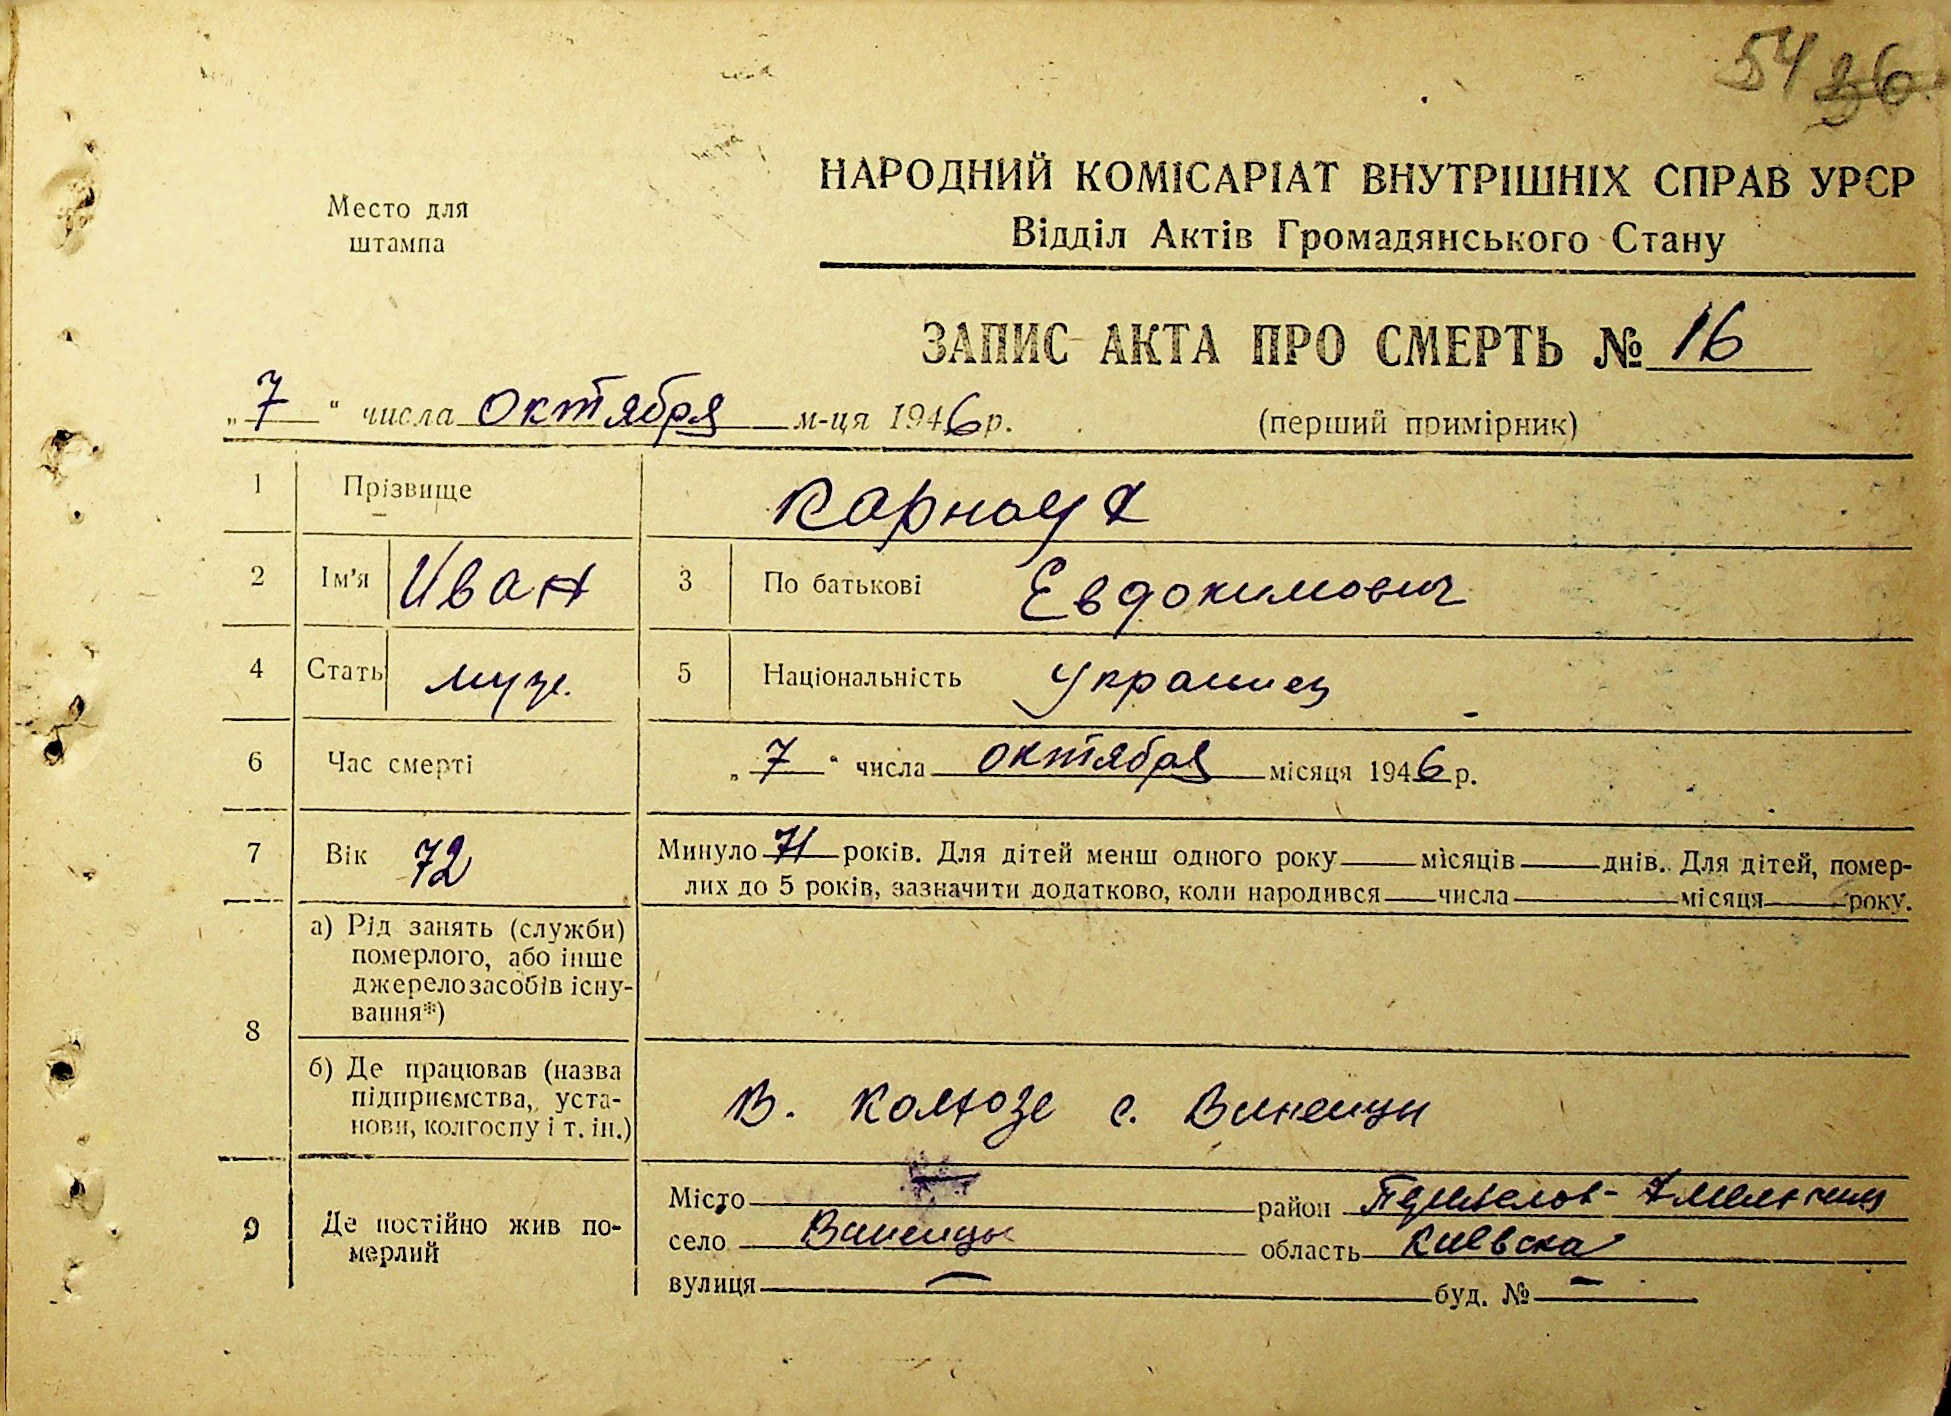 54 36
Место для
штампа
НАРОДНИЙ КОМІСАРІАТ ВНУТРІШНІХ СПРАВ УРСР
Відділ Актів Громадянського Стану
ЗАПИС АКТА ПРО СМЕРТЬ № 16
„7“ числа октября м-ця 1946 р.
(перший примірник)
1 Прізвище Карнаух
2 Ім'я Иван 3 По батькові Евдокимович
4 Стать муж. 5 Національність Украинец
6 Час смерті „7“ числа октября місяця 1946 р.
7 Вік 72 Минуло 71 років. Для дітей менш одного року місяців днів. Для дітей, помер-
лих до 5 років, зазначити додатково, коли народився числа місяця року.
8 а) Рід занять (служби)
померлого, або інше
джерело засобів існу-
вання*)
б) Де працював (назва
підприємства, уста-
нови, колгоспу і т. ін.)
В. колхозе с. Виненцы
9 Де постійно жив по-
мерлий
Місто — район Переяслов-Хмельниц
село Виненцы область Киевска
вулиця — буд. № —